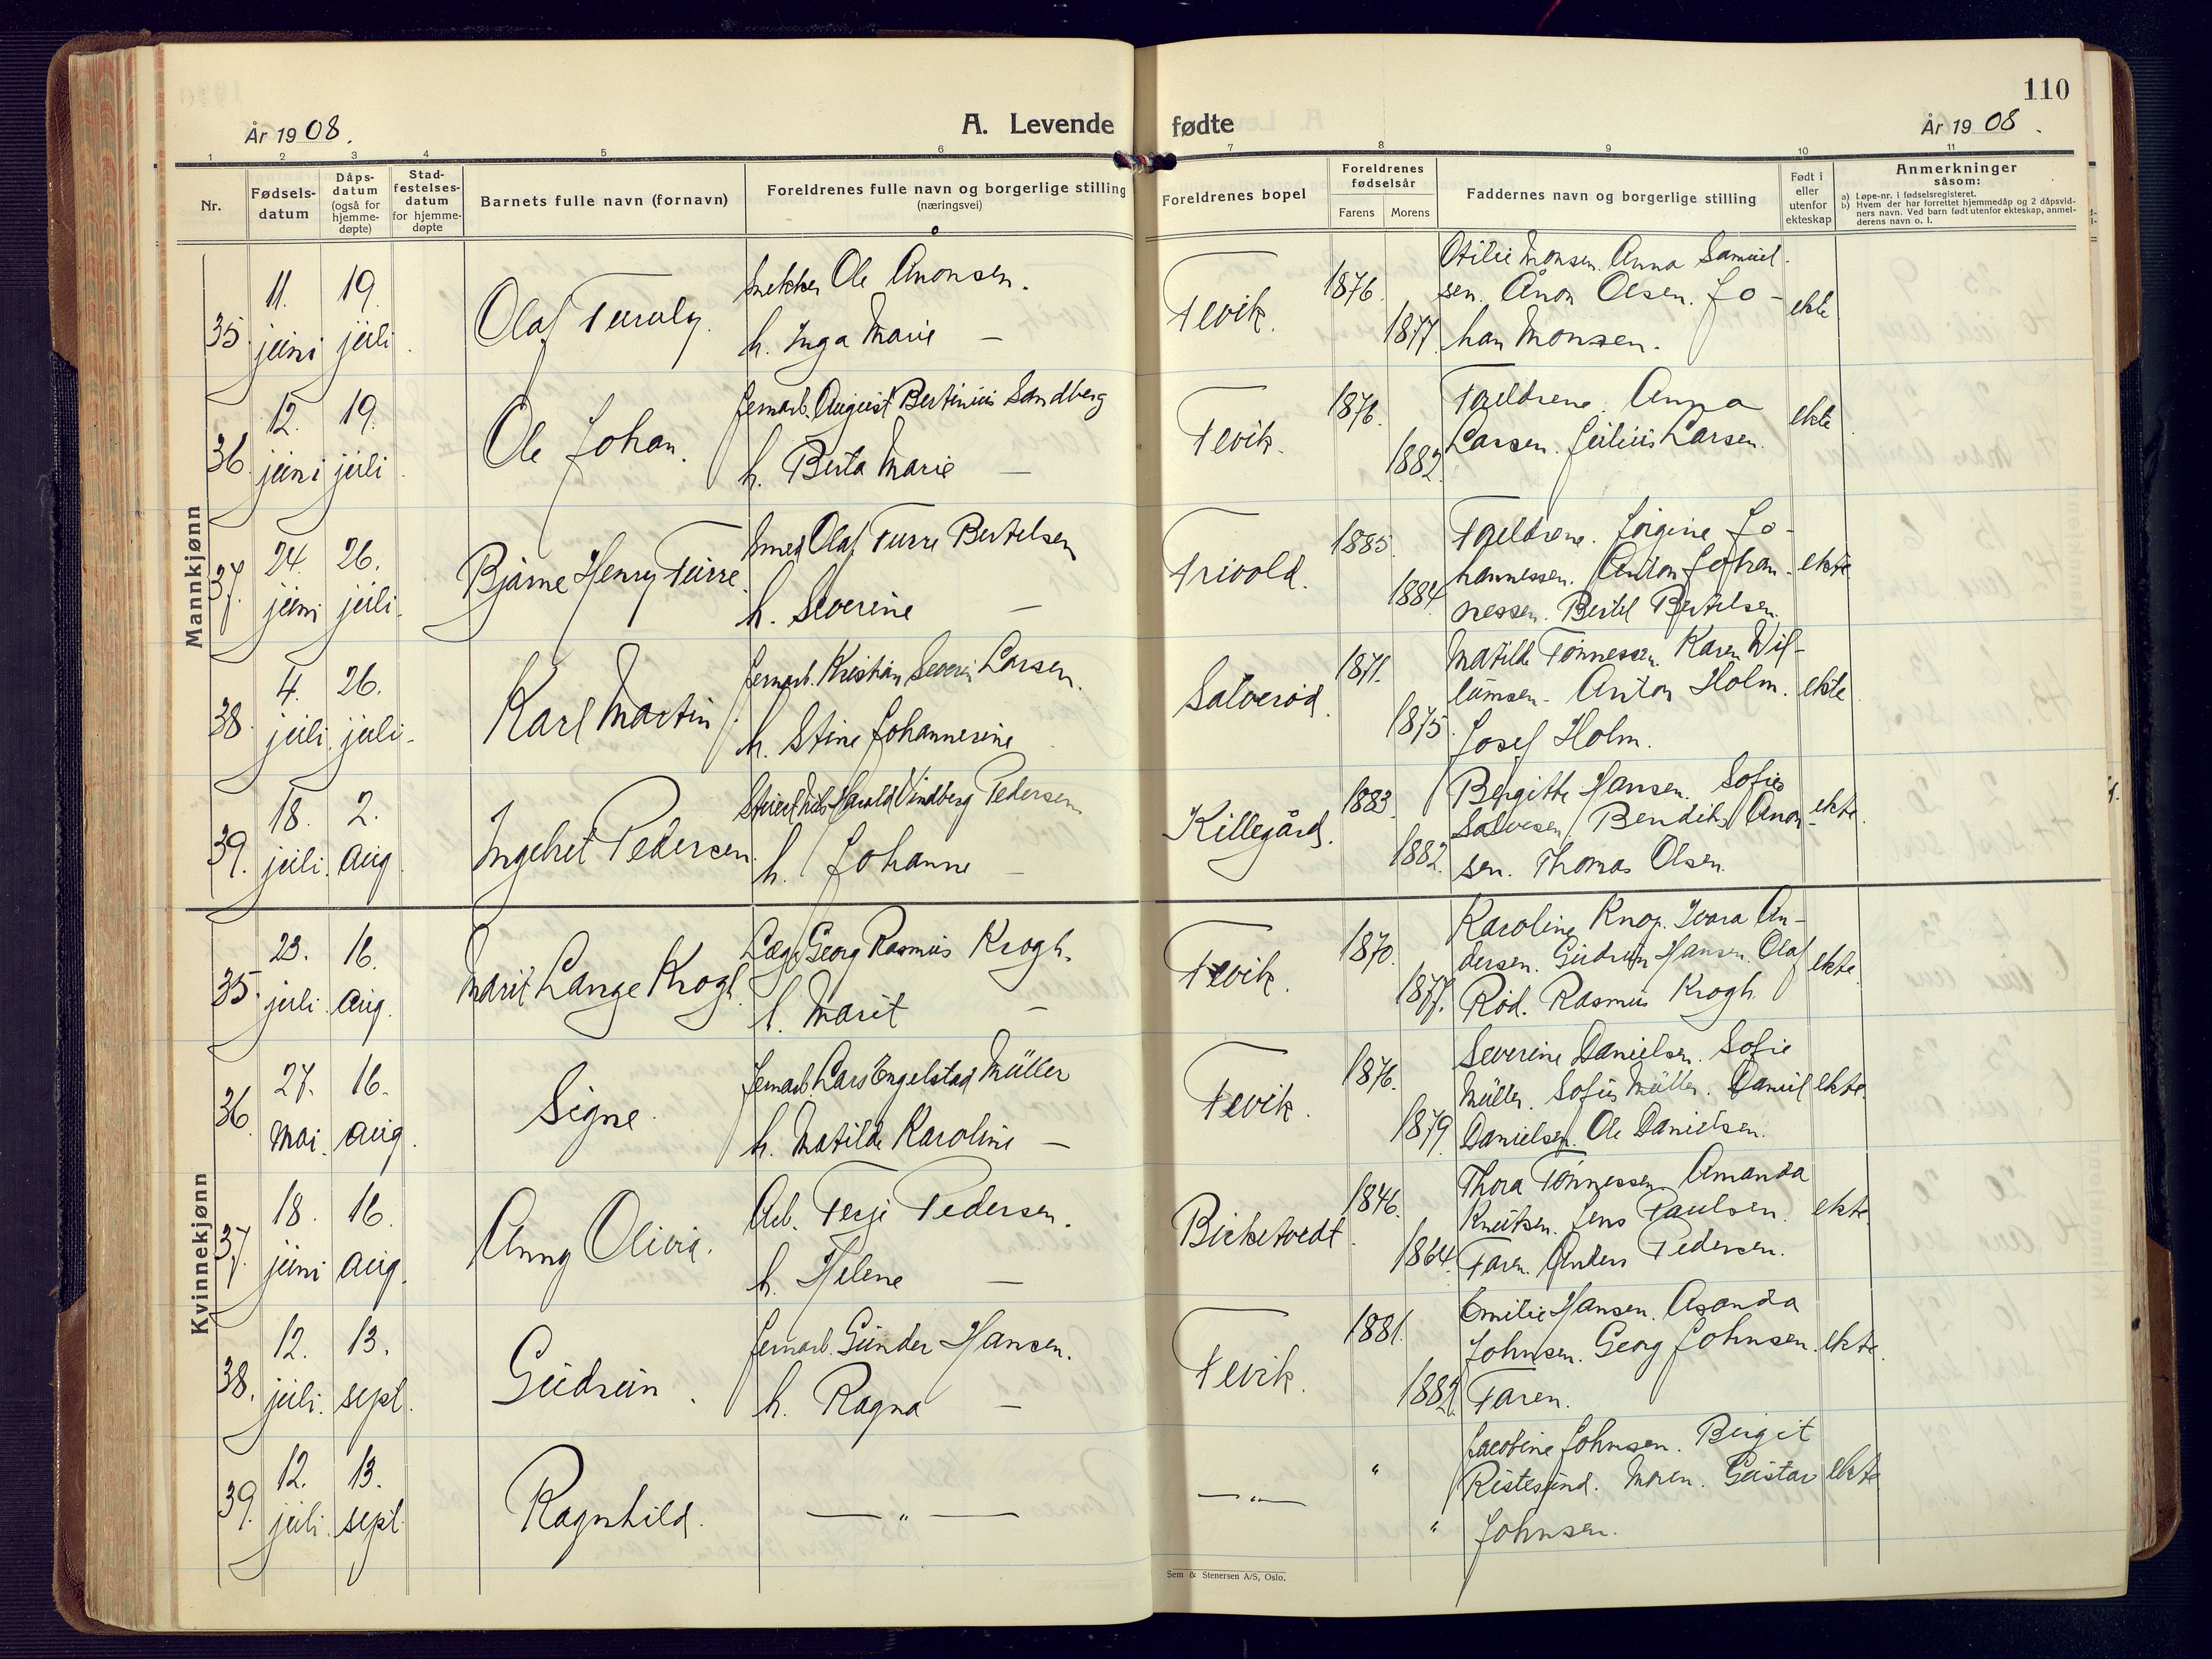 110
År 1908.
A. Levende fødte
År 1908.
1 2 3 4 5 6 7 8 9 10 11
Nr.
Fødsels-
datum
Dåps-
datum
(også for
hjemme-
døpte)
Stad-
festelses-
datum
for hjemme-
døpte
Barnets fulle navn (fornavn)
Foreldrenes fulle navn og borgerlige stilling
(næringsvei)
Foreldrenes bopel
Foreldrenes
fødselsår
Farens Morens
Faddernes navn og borgerlige stilling
Født i
eller
utenfor
ekteskap
Anmerkninger
såsom:
a) Løpe-nr. i fødselsregisteret.
b) Hvem der har forrettet hjemmedåp og 2 dåpsvid-
ners navn. Ved barn født utenfor ekteskap, anmel-
derens navn o. l.
Mannkjønn
35
11.
juni
19.
juli
Olaf
Snekker Ole Ånonsen.
h. Inga Marie —
Fevik.
1876.
1877
Otilie Monsen. Anna Samuel-
sen. Ånon Olsen. Jo-
han Monsen.
ekte
36
12.
juni
19.
juli
Ole Johan.
Jernarb. August Bertinius Sandberg
h. Berta Marie —
Fevik.
1876.
1882
Foreldrene. Anna
Larsen. Julius Larsen.
ekte
37.
24.
juni
26.
juli.
Bjarne Henry Furre.
Smed Olaf Furre Bertelsen
h. Severine —
Trivold.
1885.
1884
Foreldrene. Jørgine Jo-
hannessen. Anton Johan-
nessen. Bertel Bertelsen.
ekte
38.
4.
juli.
26.
juli.
Karl Martin.
Jernarb. Kristian Severin Larsen.
h. Stine Johannesine
Salverød.
1871.
1875
Matilde Tønnessen. Karen Wil-
lumsen. Anton Holm.
Josef Holm.
ekte
39.
18.
juli.
2.
aug
Ingebret Pedersen.
Harald Vindberg Pedersen
h. Johanne —
Killegård.
1883.
1882.
Bergitte Hansen. Sofie
Salvesen. Bendiks Anon-
sen. Thomas Olsen.
ekte.
Kvinnekjønn
35.
23.
juli.
16.
aug.
Marit Lange Krogh.
Læge Georg Rasmus Krogh.
h. Marit —
Fevik.
1870.
1877.
Karoline Knop. Ivara An-
dersen. Gudrun Hansen. Olaf
Rød. Rasmus Krogh.
ekte.
36.
27.
mai.
16.
aug.
Signe.
Jernarb. Lars Engelstad Müller
h. Matilde Karoline —
Fevik.
1876.
1879
Severine Danielsen. Sofie
Müller. Sofus Müller. Daniel
Danielsen. Ole Danielsen.
ekte.
37.
18.
juni
16.
aug.
Anny Olivia.
Arb. Terje Pedersen.
h. Helene —
Birketvedt.
1846.
1864.
Thora Tønnessen. Amanda
Knutsen. Jens Paulsen.
Faren. Anders Pedersen.
ekte.
38.
12.
juli.
13.
sept.
Gudrun.
Jernarb. Gunder Hansen.
h. Ragna —
Fevik.
1881.
1882.
Emilie Hansen. Asanda
Johnsen. Georg Johnsen.
Faren.
ekte.
39.
12.
juli.
13.
sept.
Ragnhild.
— " —
— " —
"
"
Jacobine Johnsen. Birgit
Ristesund. Moren. Gustav
Johnsen.
ekte
Sem & Stenersen A/S, Oslo.